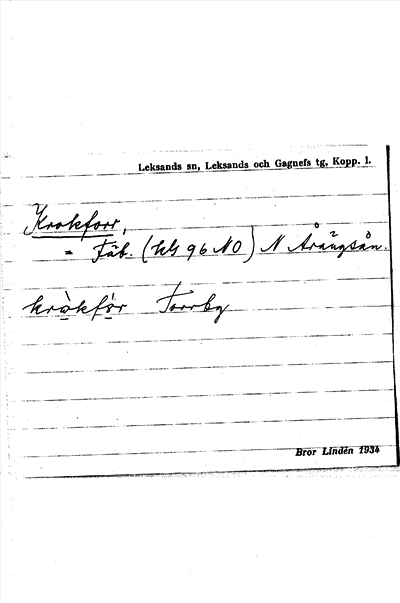 Leksands sn, Leksands och Gagnefs tg, Kopp. l.
Krokforr,
= Fäb. (kbl 96 NO) N Åräng­sån.
kròkfór Torrby
Bror Lindén 1934